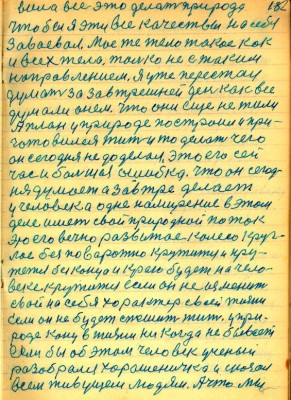 вила все это делат природа
182
чтобы я эти все качества на себя
завоевал. Мое же тело такое как
и всех тела, только не с таким
направлением. Я уже перестал
думат за завтрешней ден как все
думали о нем. Что они еще не жили
А план у природе построили и при-
готовился жит и то делат чего
он сегодня не доделал, это его сей
час и болшая ошибка. Что он сегод-
ня думает а завтре делает
у человека одне намирение в этом
деле имет свой природной поток
это его вечно развитое колесо круг-
лое бес поваротно крутит и кру-
тет без конца и краю будет на чело-
веке крутит если он не изменит
свой на себя характер своей жизни
если он не будет спешит жит. у при-
роде кону в жизни ни когда не бывает
если бы об этом человек ученый
разобрался харашеничка и сказал
всем живущем людям. А что мы